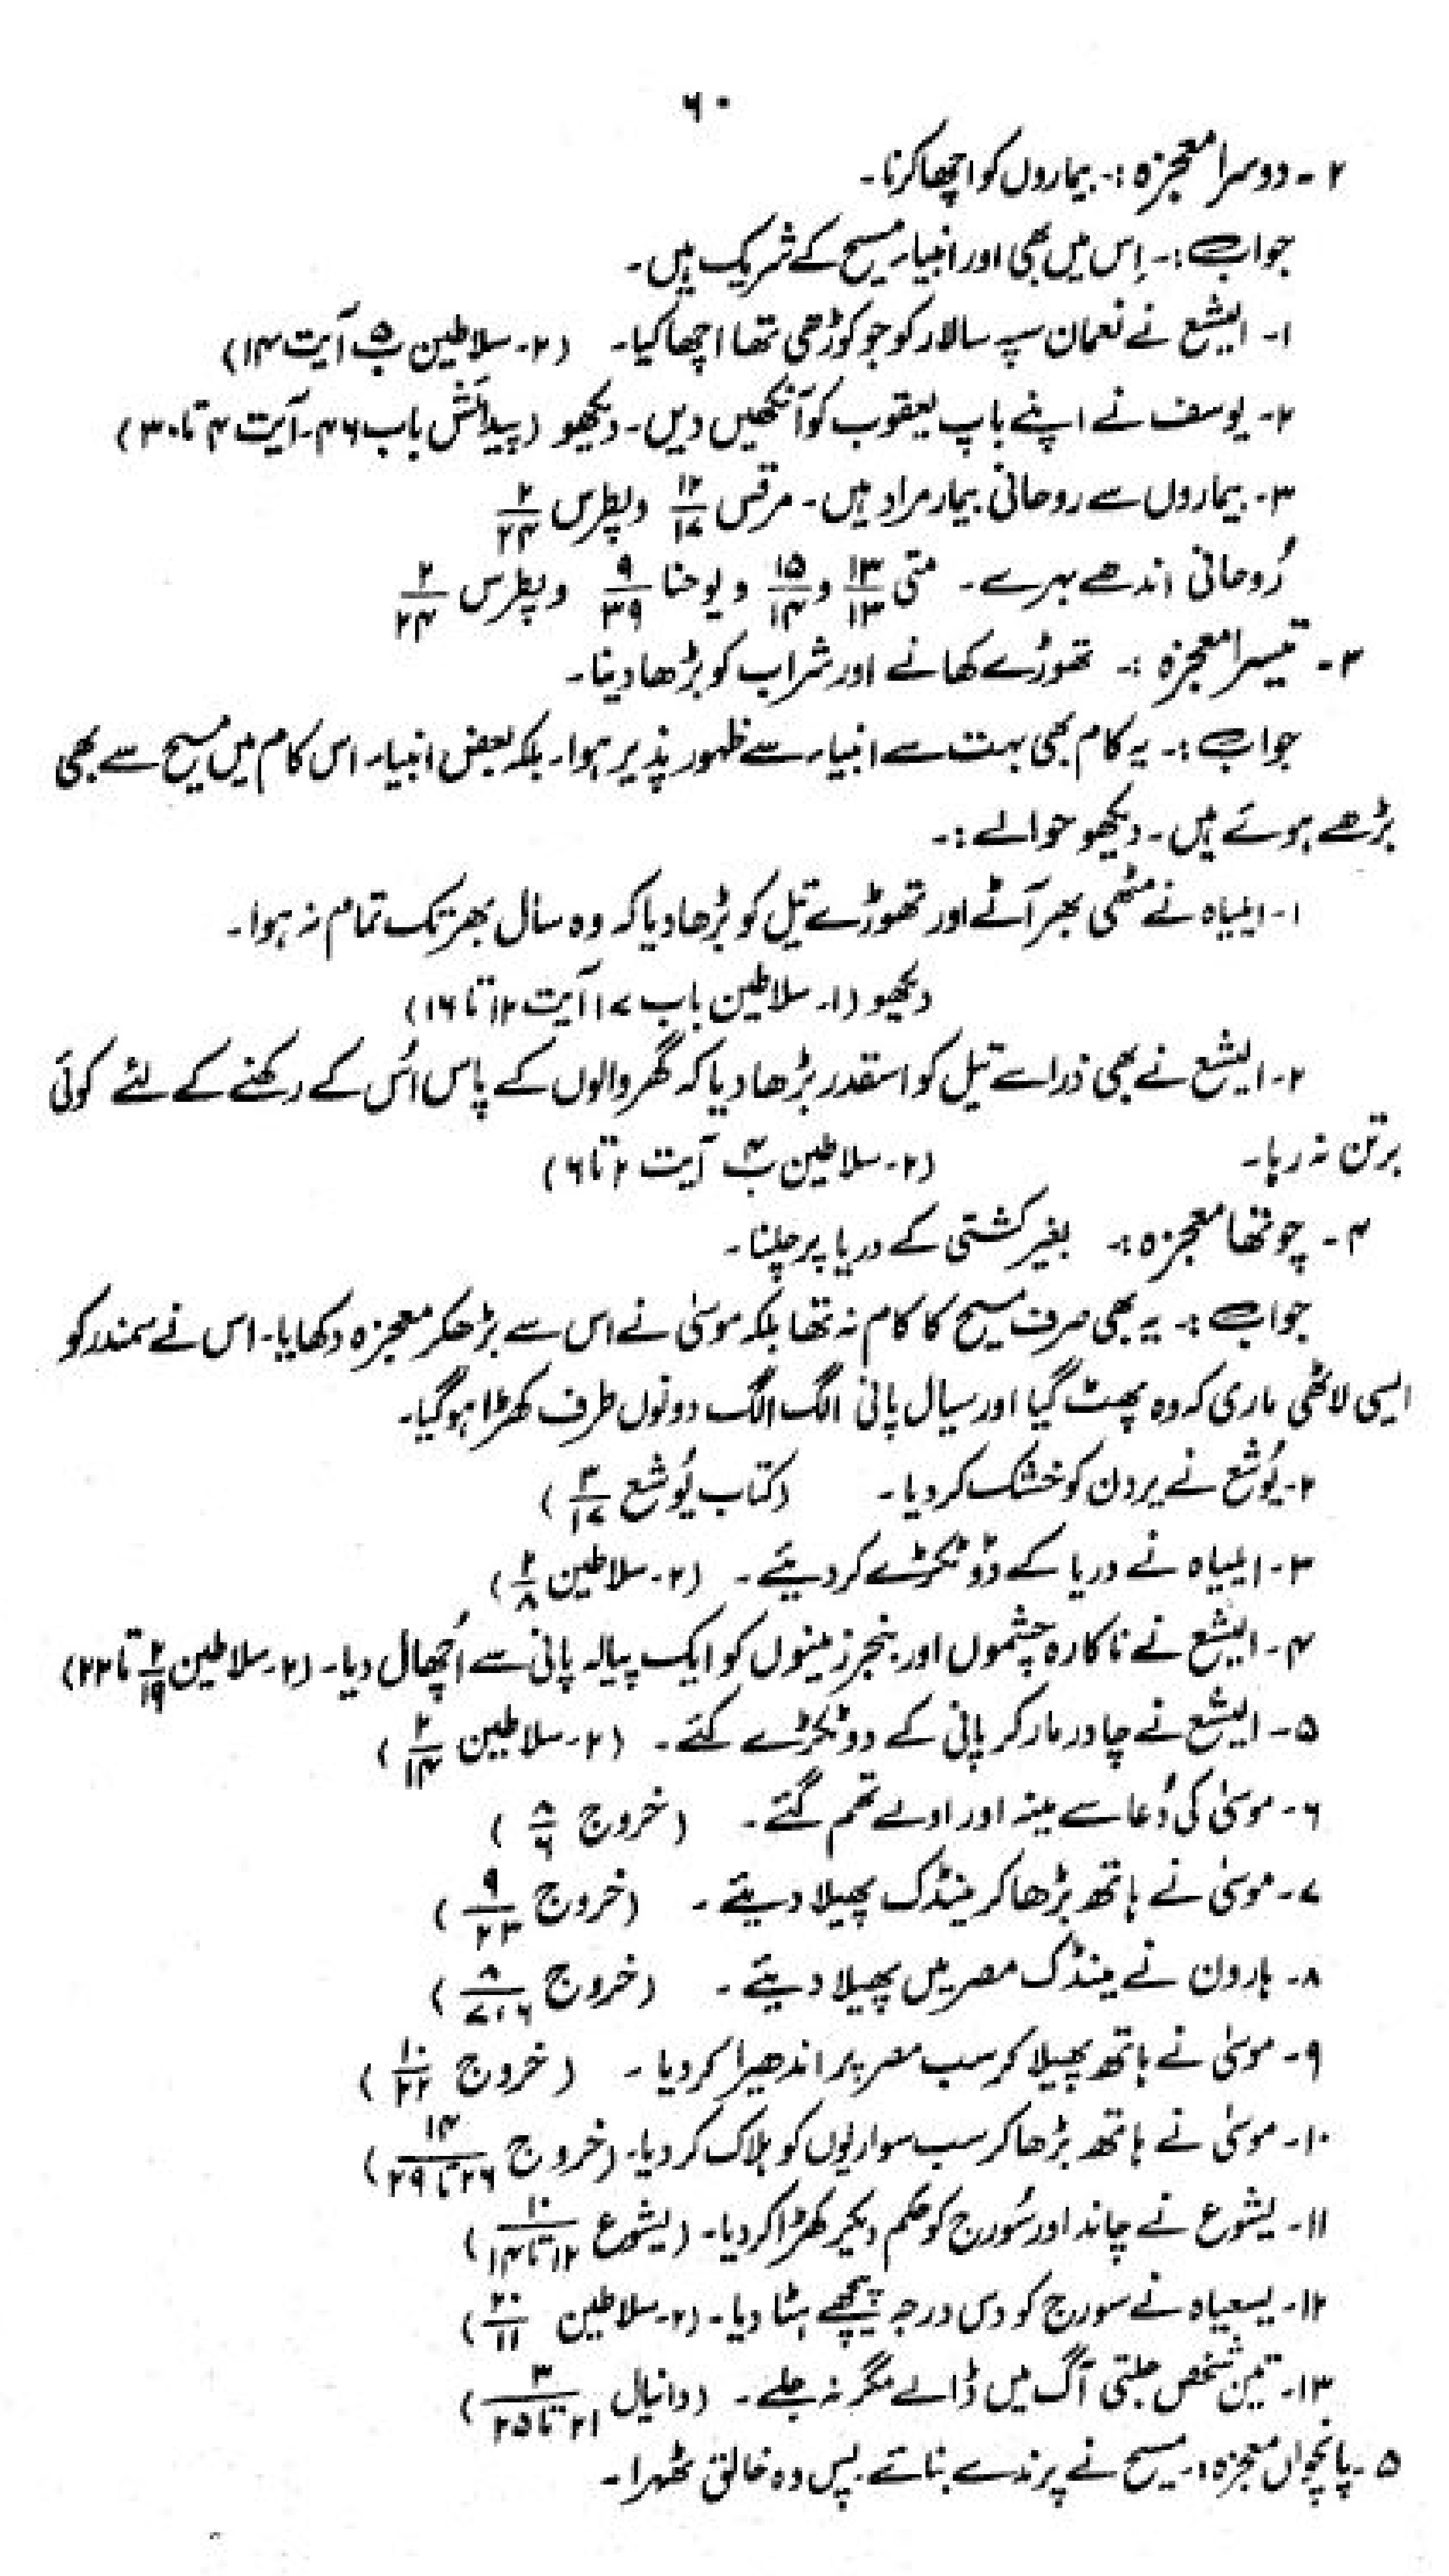 ۶۰
۲ - دوسرا معجزہ :- بیماروں کو اچھا کرنا۔
جواب :- اِس میں بھی اور انبیاء مسیح کے شریک ہیں۔
۱- الیشع نے نعمان سپہ سالار کو جو کوڑھی تھا اچھا کیا۔ (۲۔ سلاطین ب ۵ آیت ۱۴)
۲- یوسف نے اپنے باپ یعقوب کو آنکھیں دیں۔ دیکھو (پیدائش باب ۴۶۔ آیت ۴ تا ۳۰)
۳- بیماروں سے روحانی بیمار مراد ہیں۔ مرقس ۱۲/۱۷ و پطرس ۲/۲۴
رُوحانی اندھے بہرے۔ متی ۱۳/۱۳ و ۱۵/۱۴ و یوحنا ۹/۳۹ و پطرس ۲/۲۴
۳ - تیسرا معجزہ :- تھوڑے کھانے اور شراب کو بڑھا دینا۔
جواب :- یہ کام بھی بہت سے انبیاء سے ظہور پذیر ہوا۔ بلکہ بعض انبیاء اس کام میں مسیح سے بھی
بڑھے ہوئے ہیں۔ دیکھو حوالے :-
۱- ایلیاہ نے مٹھی بھر آٹے اور تھوڑے تیل کو بڑھا دیا کہ وہ سال بھر تک تمام نہ ہوا۔
دیکھو (۱۔ سلاطین باب ۱۷ آیت ۱۲ تا ۱۶)
۲- الیشع نے بھی ذرا سے تیل کو اسقدر بڑھا دیا کہ گھر والوں کے پاس اُس کے رکھنے کے لئے کوئی
برتن نہ رہا۔ (۲۔ سلاطین ب ۴ آیت ۲ تا ۶)
۴ - چوتھا معجزہ :- بغیر کشتی کے دریا پر چلنا۔
جواب :- یہ بھی صرف مسیح کا کام نہ تھا بلکہ موسیٰ نے اس سے بڑھکر معجزہ دکھایا۔ اس نے سمندر کو
ایسی لاٹھی ماری کہ وہ پھٹ گیا اور سیال پانی الگ الگ دونوں طرف کھڑا ہوگیا۔
۲- یُوشع نے یردن کو خشک کر دیا۔ (کتاب یُوشع ۳/۱۷)
۳- ایلیاہ نے دریا کے دوٹکڑے کر دیئے۔ (۲۔ سلاطین ۲/۸)
۴- الیشع نے ناکارہ چشموں اور بنجر زمینوں کو ایک پیالہ پانی سے اُچھال دیا۔ (۲۔ سلاطین ۲/۱۹ تا ۲۲)
۵- الیشع نے چادر مار کر پانی کے دو ٹکڑے کئے۔ (۲۔ سلاطین ۲/۱۴)
۶- موسیٰ کی دُعا سے مینہ اور اولے تھم گئے۔ (خروج ۸/۶)
۷- موسیٰ نے ہاتھ بڑھا کر مینڈک پھیلا دیئے۔ (خروج ۹/۲۳)
۸- ہارون نے مینڈک مصر میں پھیلا دیئے۔ (خروج ۸/۶،۷)
۹- موسیٰ نے ہاتھ پھیلا کر سب مصر پر اندھیرا کر دیا۔ (خروج ۱۰/۲۲)
۱۰- موسیٰ نے ہاتھ بڑھا کر سب سواریوں کو ہلاک کر دیا۔ (خروج ۱۴/۲۶ تا ۲۹)
۱۱- یشوع نے چاند اور سُورج کو حکم دیکر کھڑا کر دیا۔ (یشوع ۱۰/۱۲ تا ۱۴)
۱۲- یسعیاہ نے سورج کو دس درجہ پیچھے ہٹا دیا۔ (۲۔ سلاطین ۲۰/۱۱)
۱۳- تین شخص جلتی آگ میں ڈالے مگر نہ جلے۔ (دانیال ۳/۲۱ تا ۲۵)
۵ - پانچواں معجزہ :- مسیح نے پرندے بنائے۔ پس وہ خالق ٹھہرا۔